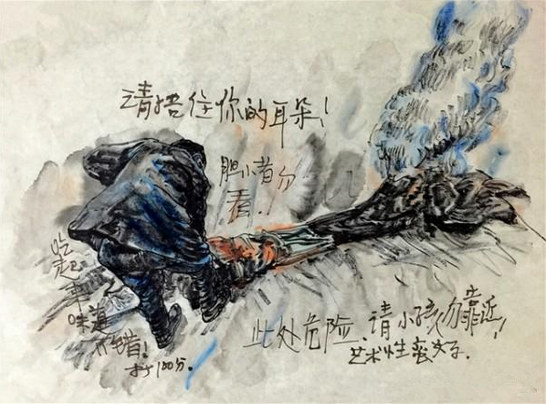 请捂住你的耳朵！
胆小者勿
看.
吃起来
味道
不错！
打100分.
此处危险.请小孩勿靠近！
艺术性蛮好.